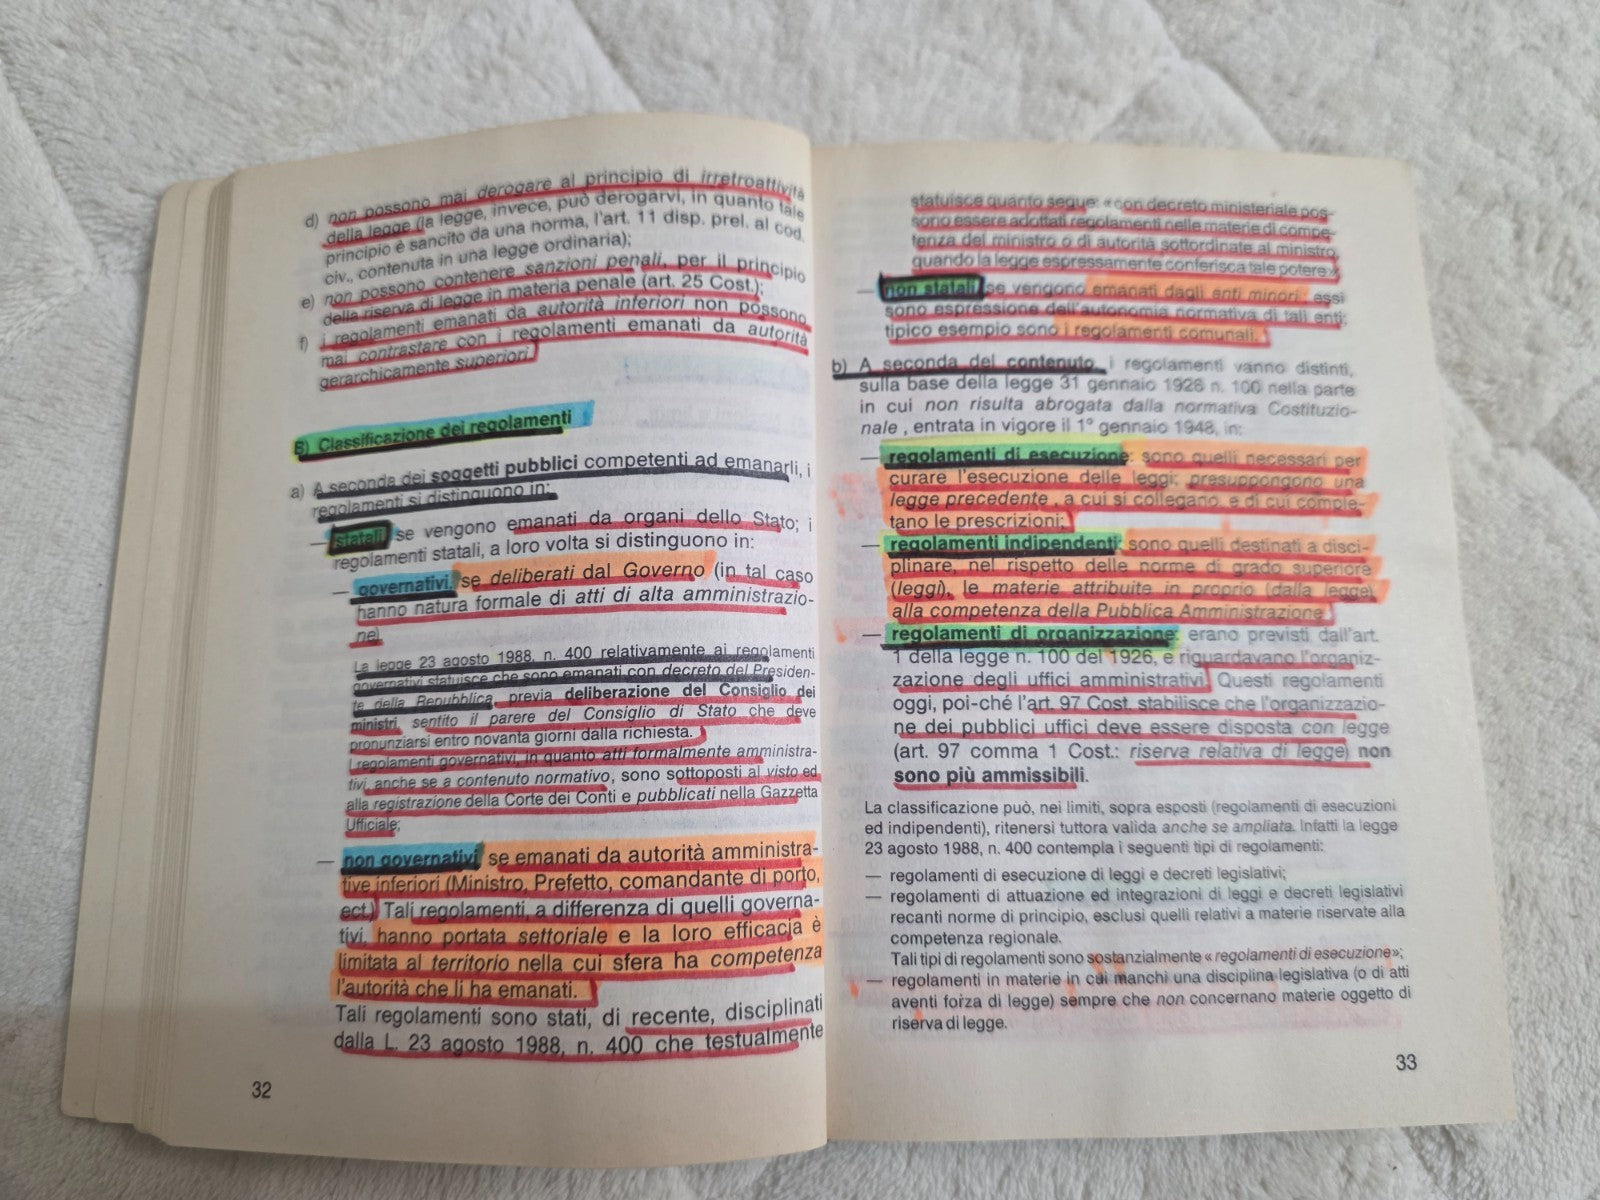 d) non possono mai derogare al principio di irretroattività
della legge (la legge, invece, può derogarvi, in quanto tale
principio è sancito da una norma, l'art. 11 disp. prel. al cod.
civ., contenuta in una legge ordinaria);
e) non possono contenere sanzioni penali, per il principio
della riserva di legge in materia penale (art. 25 Cost.);
f) i regolamenti emanati da autorità inferiori non possono
mai contrastare con i regolamenti emanati da autorità
gerarchicamente superiori.
B) Classificazione dei regolamenti
a) A seconda dei soggetti pubblici competenti ad emanarli, i
regolamenti si distinguono in:
— statali se vengono emanati da organi dello Stato; i
regolamenti statali, a loro volta si distinguono in:
— governativi, se deliberati dal Governo (in tal caso
hanno natura formale di atti di alta amministrazio-
ne).
La legge 23 agosto 1988, n. 400 relativamente ai regolamenti
governativi statuisce che sono emanati con decreto del Presiden-
te della Repubblica, previa deliberazione del Consiglio dei
ministri, sentito il parere del Consiglio di Stato che deve
pronunziarsi entro novanta giorni dalla richiesta.
I regolamenti governativi, in quanto atti formalmente amministra-
tivi, anche se a contenuto normativo, sono sottoposti al visto ed
alla registrazione della Corte dei Conti e pubblicati nella Gazzetta
Ufficiale;
— non governativi se emanati da autorità amministra-
tive inferiori (Ministro, Prefetto, comandante di porto,
ect.) Tali regolamenti, a differenza di quelli governa-
tivi, hanno portata settoriale e la loro efficacia è
limitata al territorio nella cui sfera ha competenza
l'autorità che li ha emanati.
Tali regolamenti sono stati, di recente, disciplinati
dalla L. 23 agosto 1988, n. 400 che testualmente
32
statuisce quanto segue: «con decreto ministeriale pos-
sono essere adottati regolamenti nelle materie di compe-
tenza del ministro o di autorità sottordinate al ministro,
quando la legge espressamente conferisca tale potere»;
— non statali se vengono emanati dagli enti minori, essi
sono espressione dell'autonomia normativa di tali enti;
tipico esempio sono i regolamenti comunali.
b) A seconda del contenuto, i regolamenti vanno distinti,
sulla base della legge 31 gennaio 1926 n. 100 nella parte
in cui non risulta abrogata dalla normativa Costituzio-
nale , entrata in vigore il 1° gennaio 1948, in:
— regolamenti di esecuzione: sono quelli necessari per
curare l'esecuzione delle leggi; presuppongono una
legge precedente , a cui si collegano, e di cui comple-
tano le prescrizioni;
— regolamenti indipendenti: sono quelli destinati a disci-
plinare, nel rispetto delle norme di grado superiore
(leggi), le materie attribuite in proprio (dalla legge)
alla competenza della Pubblica Amministrazione.
— regolamenti di organizzazione: erano previsti dall'art.
1 della legge n. 100 del 1926, e riguardavano l'organiz-
zazione degli uffici amministrativi. Questi regolamenti
oggi, poi-ché l'art. 97 Cost. stabilisce che l'organizzazio-
ne dei pubblici uffici deve essere disposta con legge
(art. 97 comma 1 Cost.: riserva relativa di legge) non
sono più ammissibili.
La classificazione può, nei limiti, sopra esposti (regolamenti di esecuzioni
ed indipendenti), ritenersi tuttora valida anche se ampliata. Infatti la legge
23 agosto 1988, n. 400 contempla i seguenti tipi di regolamenti:
— regolamenti di esecuzione di leggi e decreti legislativi;
— regolamenti di attuazione ed integrazioni di leggi e decreti legislativi
recanti norme di principio, esclusi quelli relativi a materie riservate alla
competenza regionale.
Tali tipi di regolamenti sono sostanzialmente «regolamenti di esecuzione»;
— regolamenti in materie in cui manchi una disciplina legislativa (o di atti
aventi forza di legge) sempre che non concernano materie oggetto di
riserva di legge.
33